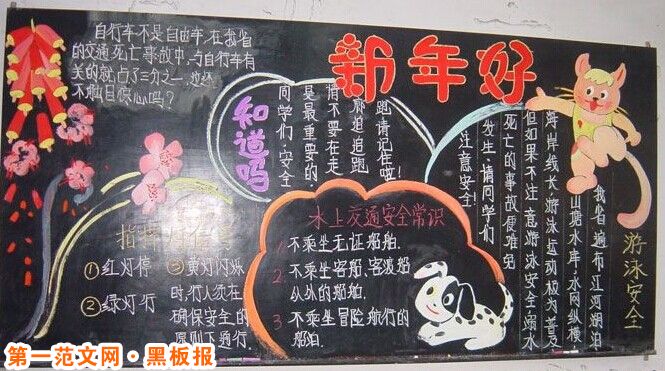 新年好
自行车不是自由车,在我省
的交通死亡事故中,与自行车有
关的就占了三分之一,这还
不触目惊心吗?
知道吗
同学们,安全
是最重要的,
请不要在走
廊追追跑
跑,请记住啦!
指挥灯信号
①红灯停
②绿灯行
③黄灯闪烁
时,行人须在
确保安全的
原则下通行.
水上交通安全常识
1 不乘坐无证船舶.
2 不乘坐客船、客渡船
以外的船舶.
3 不乘坐冒险航行的
船舶.
游泳安全
我省遍布江河湖泊
山塘水库,水网纵横
海岸线长,游泳运动极为普及
但如果不注意游泳安全,溺水
死亡的事故便难免
发生,请同学们
注意安全!
第一范文网·黑板报